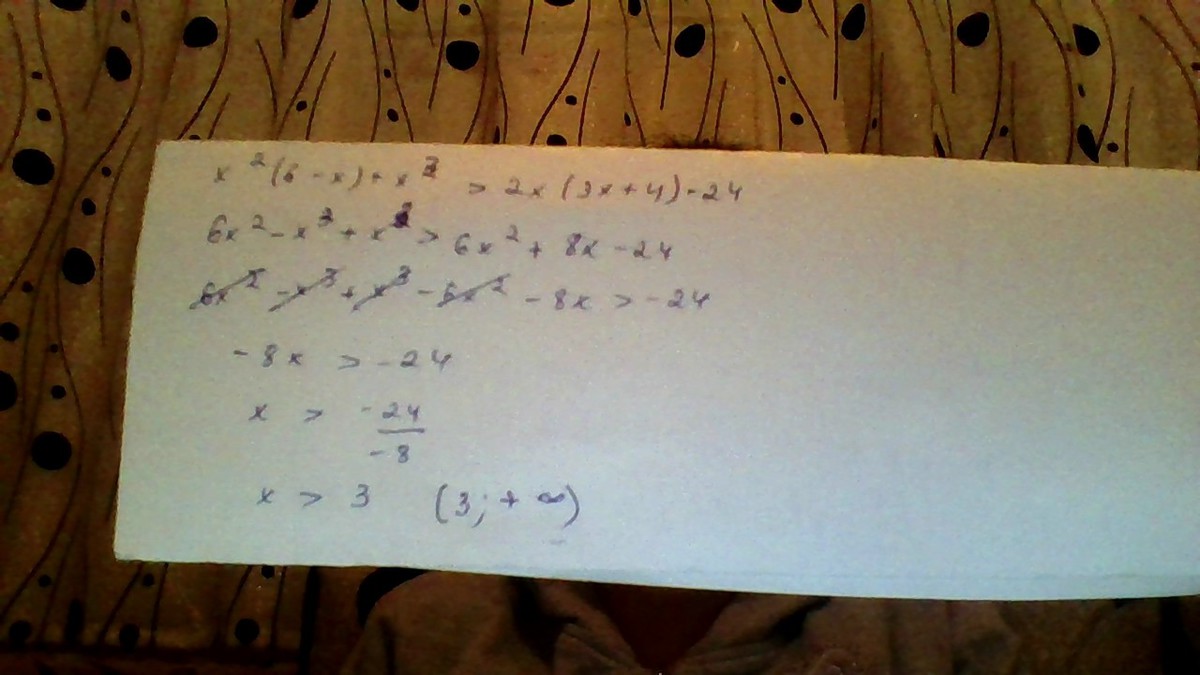 x²(6-x)+x³ > 2x(3x+4)-24
6x²-x³+x³ > 6x²+8x-24
6x²-x³+x³-6x²-8x > -24
-8x > -24
x > -24/-8
x > 3 (3;+∞)